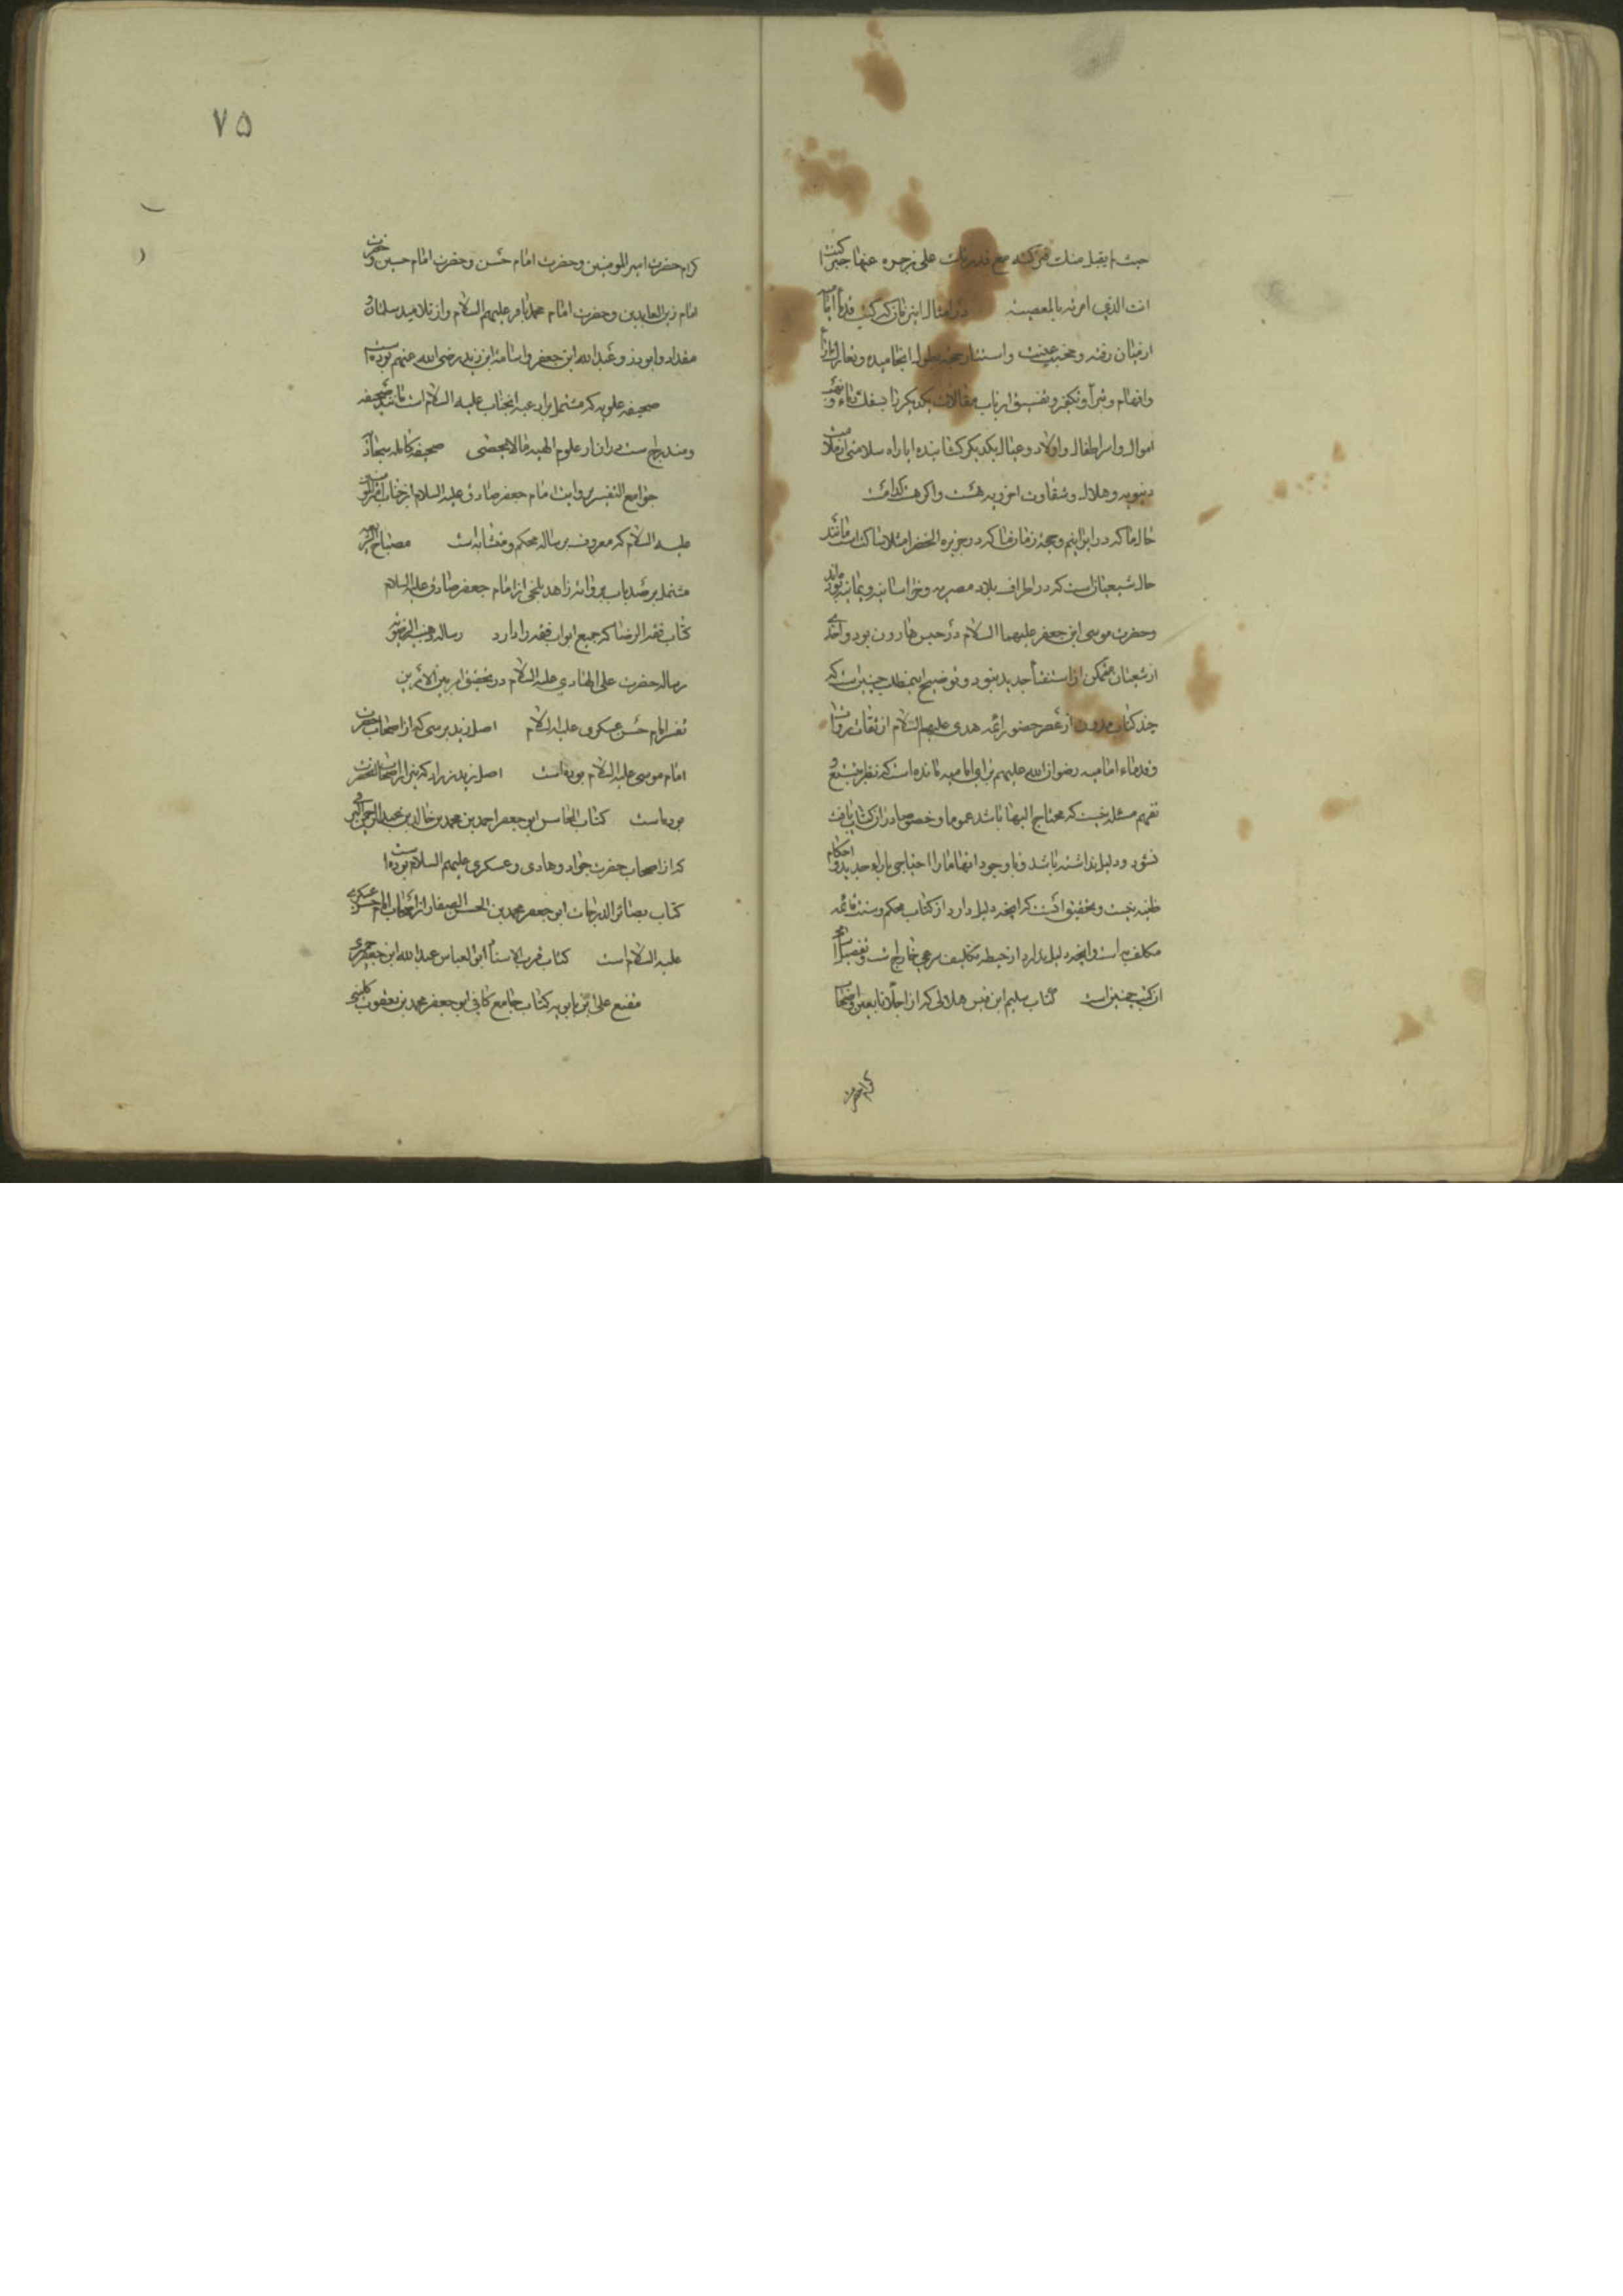 حیث لم یقبل منك فترکته مع قدرتك علی زجره عنها جبرا کنت
انت الذی امرته بالمعصیة در امثال این زمان که کتب قدماء امامیه
از میان رفته و محنت غیبت واستتار حجة بطول انجامیده و
واتهام وتبرّأ وتکفیر وتفسیق ارباب مقالات یکدیگر را بسفك دماء و
اموال واسر اطفال واولاد وعیال یکدیگر کشانیده ایا راه سلامتی از
دنیویه وهلاك وشقاوت اخرویه هست واگر هست کدامست
حال ما که در این اینم وحجة زمان ما که در جزیره الخضرا مثلا ساکن است مانند
حال شیعیان است که در اطراف بلاد مصریه وخراسانیه ویمانیه بودند
وحضرت موسی ابن جعفر علیهما السلام در حبس هارون بود واحدی
از شیعیان متمکن از استفتاء جدید نبود وتوضیح این مطلب چنین است که
چند کتاب مدون از عصر حضور ائمه هدی علیهم السلام از ثقات روات
وقدماء امامیه رضوان الله علیهم برای امامیه مانده است که بنظر تتبع و
تفهم مسئله نیست که محتاج الیها باشد عموما وخصوصا در آن کتب یافت
نشود ودلیل نداشته باشد وبا وجود اینها ما را احتیاجی باراء جدیده واحکام
ظنیه نیست وتحقیق آنست که آنچه دلیل دارد از کتاب محکم وسنت قائمه
مکلف به است وآنچه دلیل ندارد از حیطه تکلیف شرعی خارج است وتفصیل
از کتب چنین است کتاب سلیم ابن قیس هلالی که از اجلاء تابعین واصحاب
کرام حضرت
۷۵
کرام حضرت امیر المومنین وحضرت امام حسن وحضرت امام حسین وحضرت
امام زین العابدین وحضرت امام محمد باقر علیهم السلام واز تلامید سلمان و
مقداد وابوذر وعبدالله ابن جعفر واسامة ابن زید رضی الله عنهم بوده است
صحیفه علویه که مشتمل بر ادعیه انجناب علیه السلام است مانند صحیفه
ومندرج است در آن از علوم الهیه مالا یحصی صحیفه کامله سجادیه
جوامع التفسیر بروایت امام جعفر صادق علیه السلام از جناب امیر المومنین
علیه السلام که معروف برساله محکم ومتشابه است مصباح الشریعه
مشتمل بر صد باب بروایة زاهد بلخی از امام جعفر صادق علیه السلام
کتاب فقه الرضا که جمیع ابواب فقه را دارد رساله ذهبیه الرضویه
رساله حضرت علی الهادی علیه السلام در تحقیق امر بین الامرین
تفسیر امام حسن عسکری علیه السلام اصل زید نرسی که از اصحاب حضرت
امام موسی علیه السلام بوده است اصل زید زراد که نیز از اصحاب آنحضرت
بوده است کتاب المحاسن ابو جعفر احمد بن محمد بن خالد بن عبدالرحمن البرقی
که از اصحاب حضرت جواد وهادی وعسکری علیهم السلام بوده است
کتاب بصائر الدرجات ابی جعفر محمد بن الحسن الصفار از اصحاب امام حسن عسکری
علیه السلام است کتاب قرب الاسناد ابو العباس عبدالله ابن جعفر حمیری
مقنع علی ابن بابویه کتاب جامع کافی ابو جعفر محمد بن یعقوب کلینی